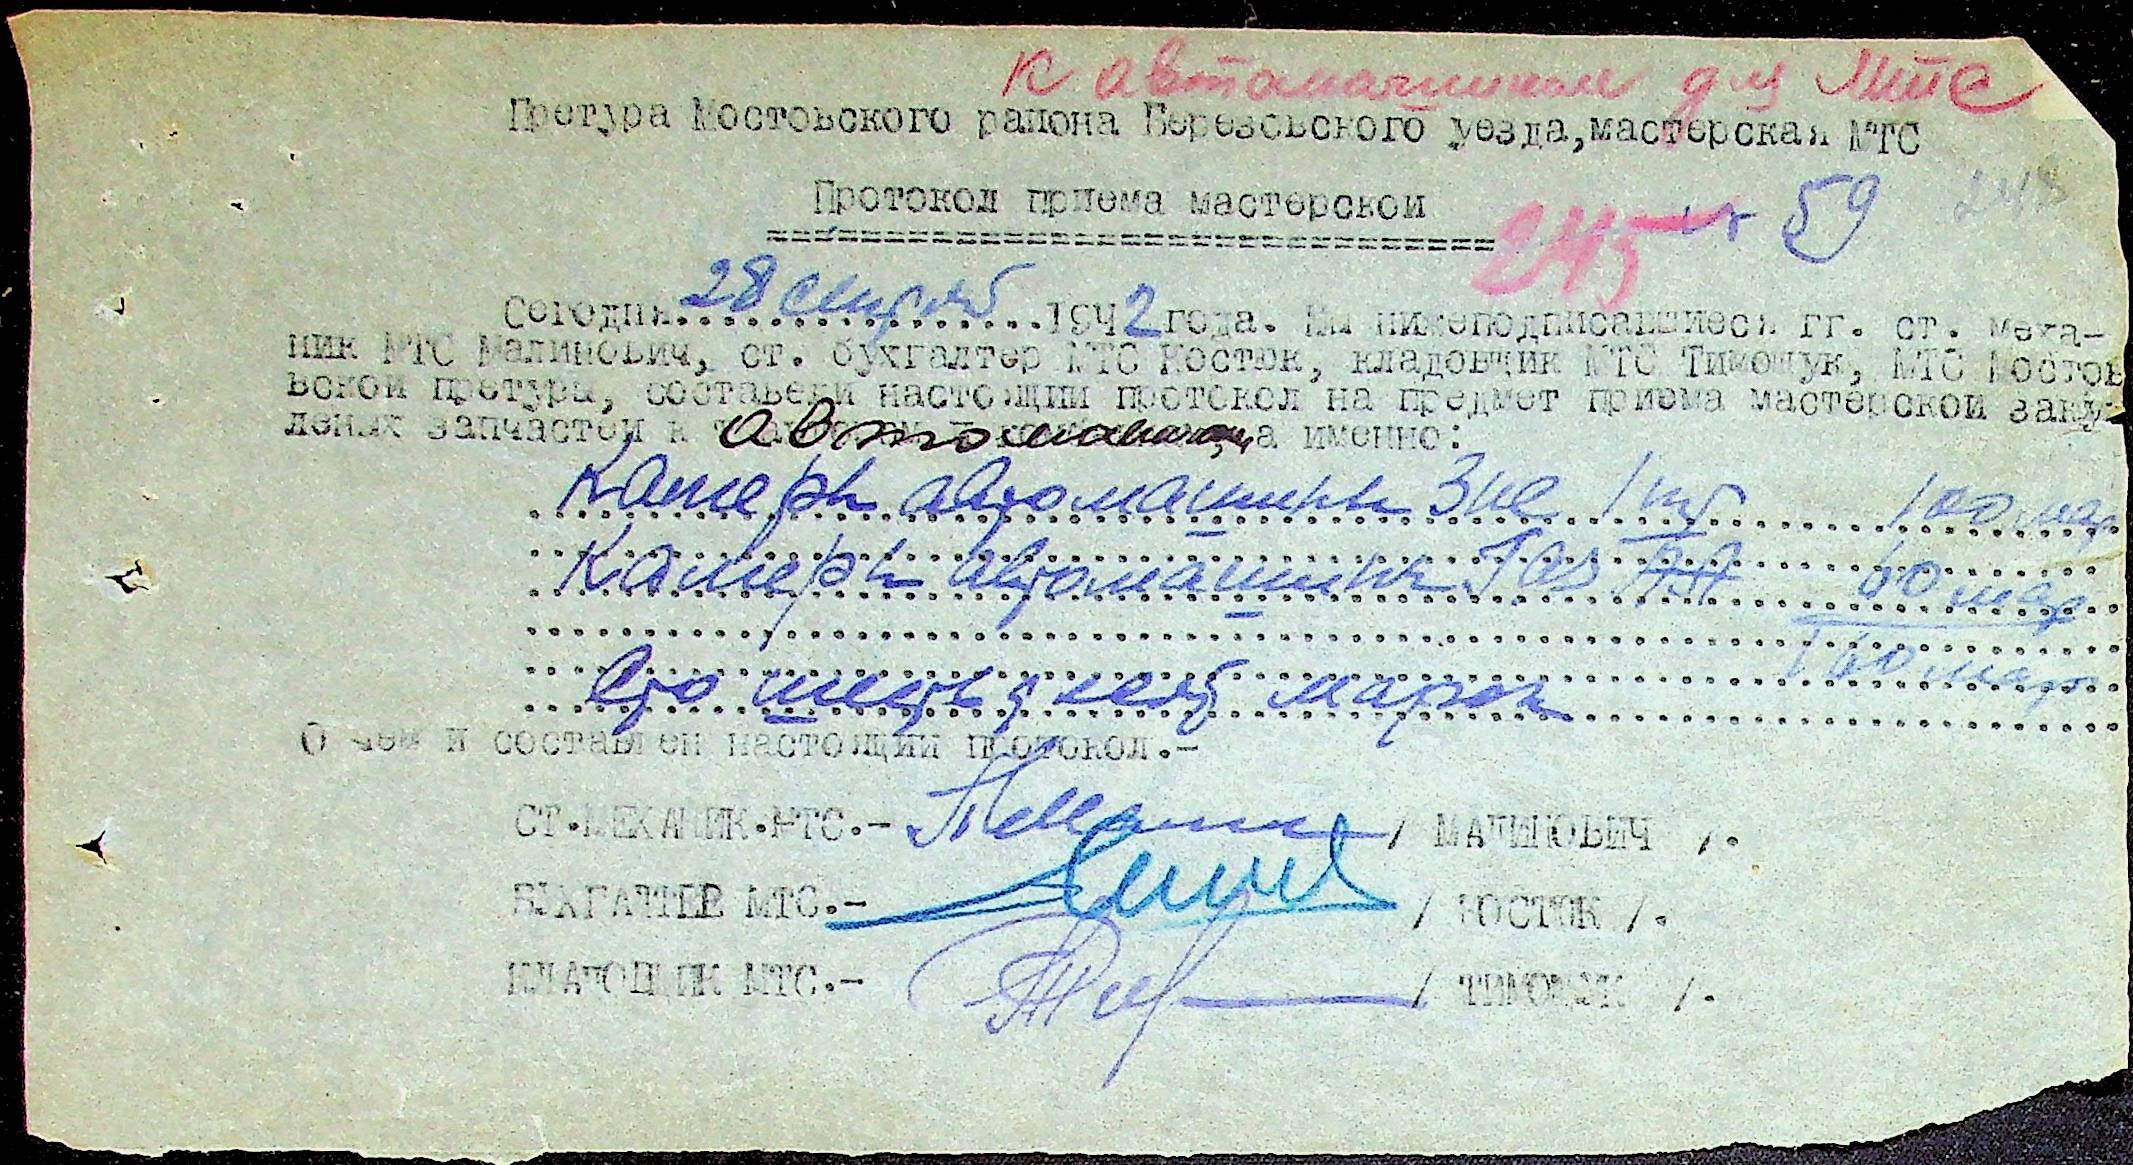 к автомашинам для МТС
Претура Мостовского района Березовского уезда, мастерская МТС
Протокол приема мастерской
245 59 248
Сегодня 28 сентяб 1942 года. Мы нижеподписавшиеся гг. ст. меха-
ник МТС Малинович, ст. бухгалтер МТС Косток, кладовщик МТС Тимощук, МТС Мостов
вской претуры, составели настоящий протокол на предмет приема мастерской заку
леных запчастей к автомашинам а именно:
Камеры автомашины Зис 1 шт 100 мар
Камеры автомашины Газ АА 60 мар
160 мар
Сто шестьдесят марок
О чем и составлен настоящий протокол.-
СТ.МЕХАНИК.МТС.- / МАЛИНОВИЧ /.
БУХГАЛТЕР МТС.- / КОСТОК /.
КЛАДОВЩИК МТС.- / ТИМОЩУК /.